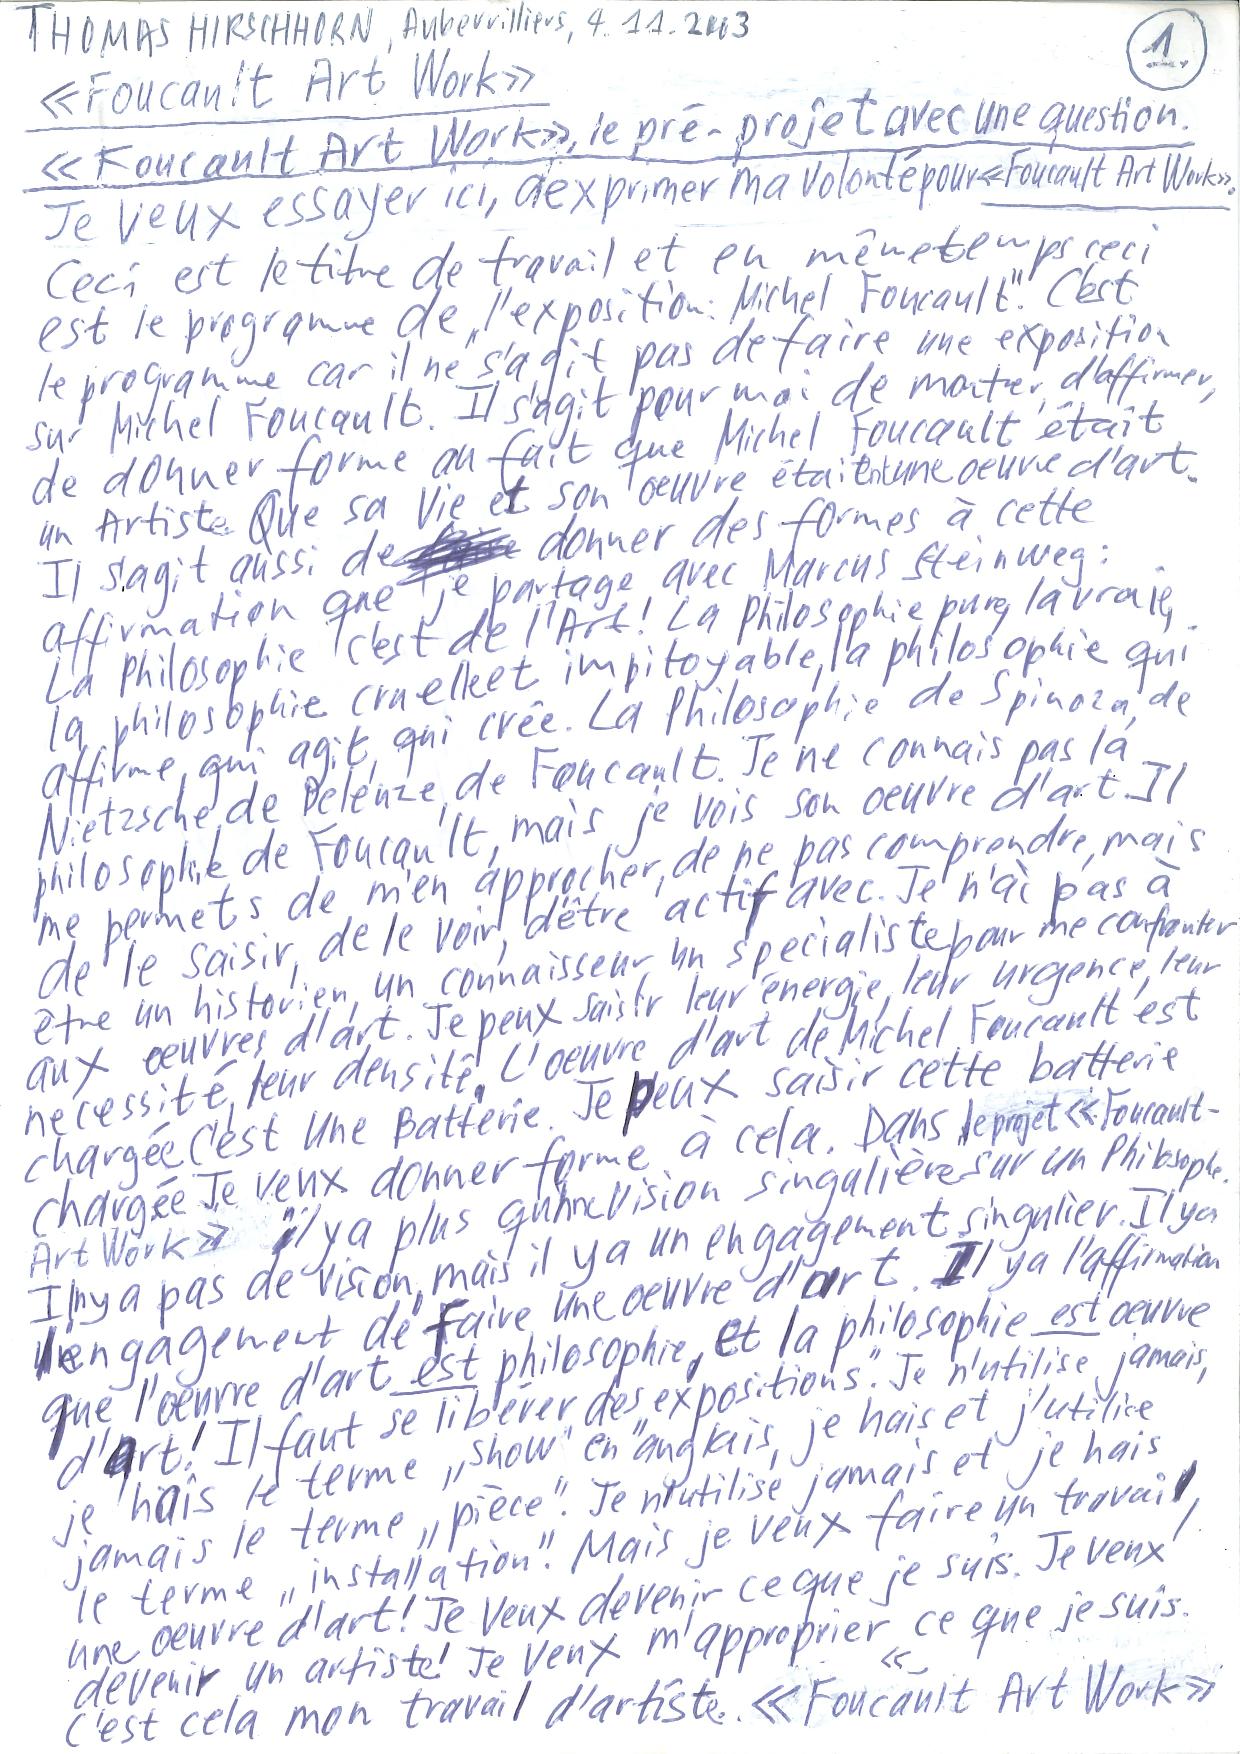 THOMAS HIRSCHHORN, Aubervilliers, 4.11.2003
1.
«Foucault Art Work»
«Foucault Art Work», le pré-projet avec une question.
Je veux essayer ici, d'exprimer ma volonté pour «Foucault Art Work».
Ceci est le titre de travail et en même temps ceci
est le programme de „l'exposition: Michel Foucault". C'est
le programme car il ne s'agit pas de faire une exposition
sur Michel Foucault. Il s'agit pour moi de monter, d'affirmer,
de donner forme au fait que Michel Foucault était
un Artiste. Que sa Vie et son oeuvre étaient une oeuvre d'art.
Il s'agit aussi de donner des formes à cette
affirmation que je partage avec Marcus Steinweg:
La Philosophie c'est de l'Art! La Philosophie pure, la vraie,
la philosophie cruelle et impitoyable, la philosophie qui
affirme, qui agit, qui crée. La Philosophie de Spinoza, de
Nietzsche, de Deleuze, de Foucault. Je ne connais pas la
philosophie de Foucault, mais je vois son oeuvre d'art. Il
me permets de m'en approcher, de ne pas comprendre, mais
de le saisir, de le voir, d'être actif avec. Je n'ai pas à
être un historien, un connaisseur, un spécialiste pour me confronter
aux oeuvres d'art. Je peux saisir leur énergie, leur urgence, leur
necessité, leur densité. L'oeuvre d'art de Michel Foucault est
chargée, c'est Une Batterie. Je peux saisir cette batterie
chargée. Je veux donner forme à cela. Dans le projet «Foucault-
Art Work» il y a plus qu'une vision singulière sur un Philosophe.
Il n'y a pas de vision, mais il y a un engagement singulier. Il y a
l'engagement de faire une oeuvre d'art. Il y a l'affirmation
que l'oeuvre d'art est philosophie, et la philosophie est oeuvre
d'art! Il faut se libérer des expositions". Je n'utilise jamais,
je hais le terme „show" en anglais, je hais et j'utilise
jamais le terme „pièce". Je n'utilise jamais et je hais
le terme „installation". Mais je veux faire un travail,
une oeuvre d'art! Je veux devenir ce que je suis. Je veux
devenir un artiste! Je veux m'approprier ce que je suis.
c'est cela mon travail d'artiste. «Foucault Art Work»